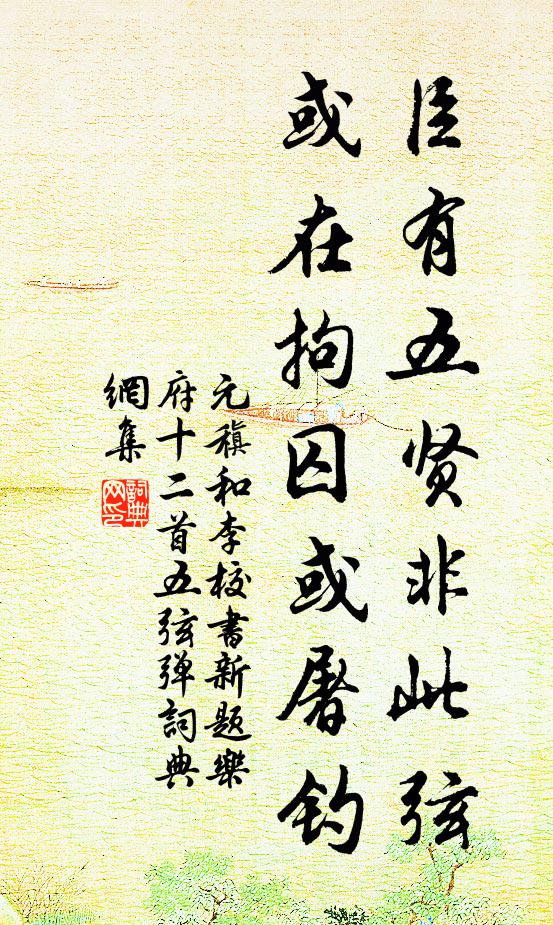 臣有五贤非此弦
或在拘囚或屠钓
元稹和李校書新题樂
府十二首五弦弹詞典
網集
詞典
网印